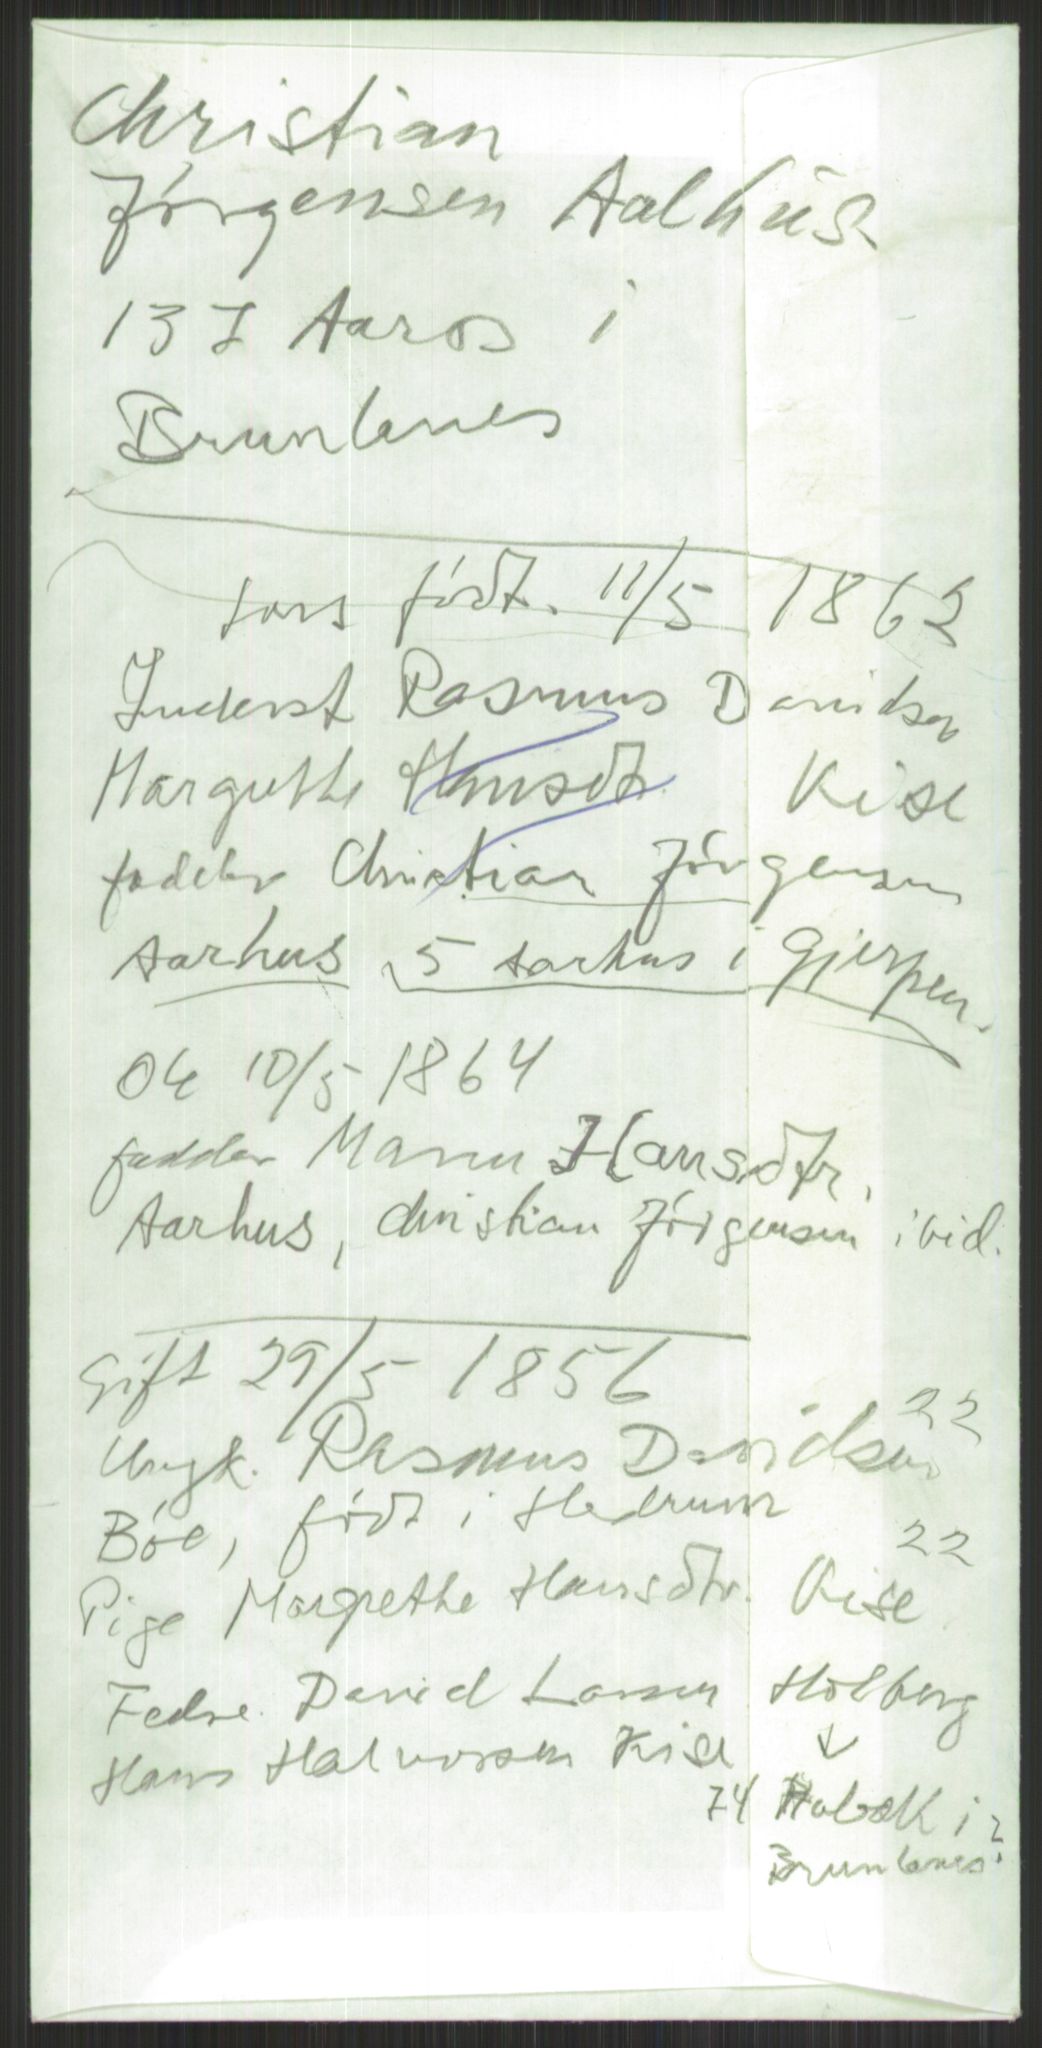 Christian
Jörgensen Aalhus
137 Aaros i
Brunlanes
Lars född. 11/5 1862
Inderst Rasmus Davidsen
Margrethe Hansdtr. Kise
fadder Christian Jörgensen
Aarhus 5 Aarhus i Gjerpen.
Ole 10/5 1864
fadder Maren Hansdtr.
Aarhus, Christian Jörgensen ibid.
Gift 29/5 1856
Ungk. Rasmus Davidsen 22
Böe, födt i Hedrum
Pige Margrethe Hansdtr. Kise 22
Fedre. David Larsen Holberg
Hans Halvorsen Kise ↓
74 Holbekk i
Brunlanes?